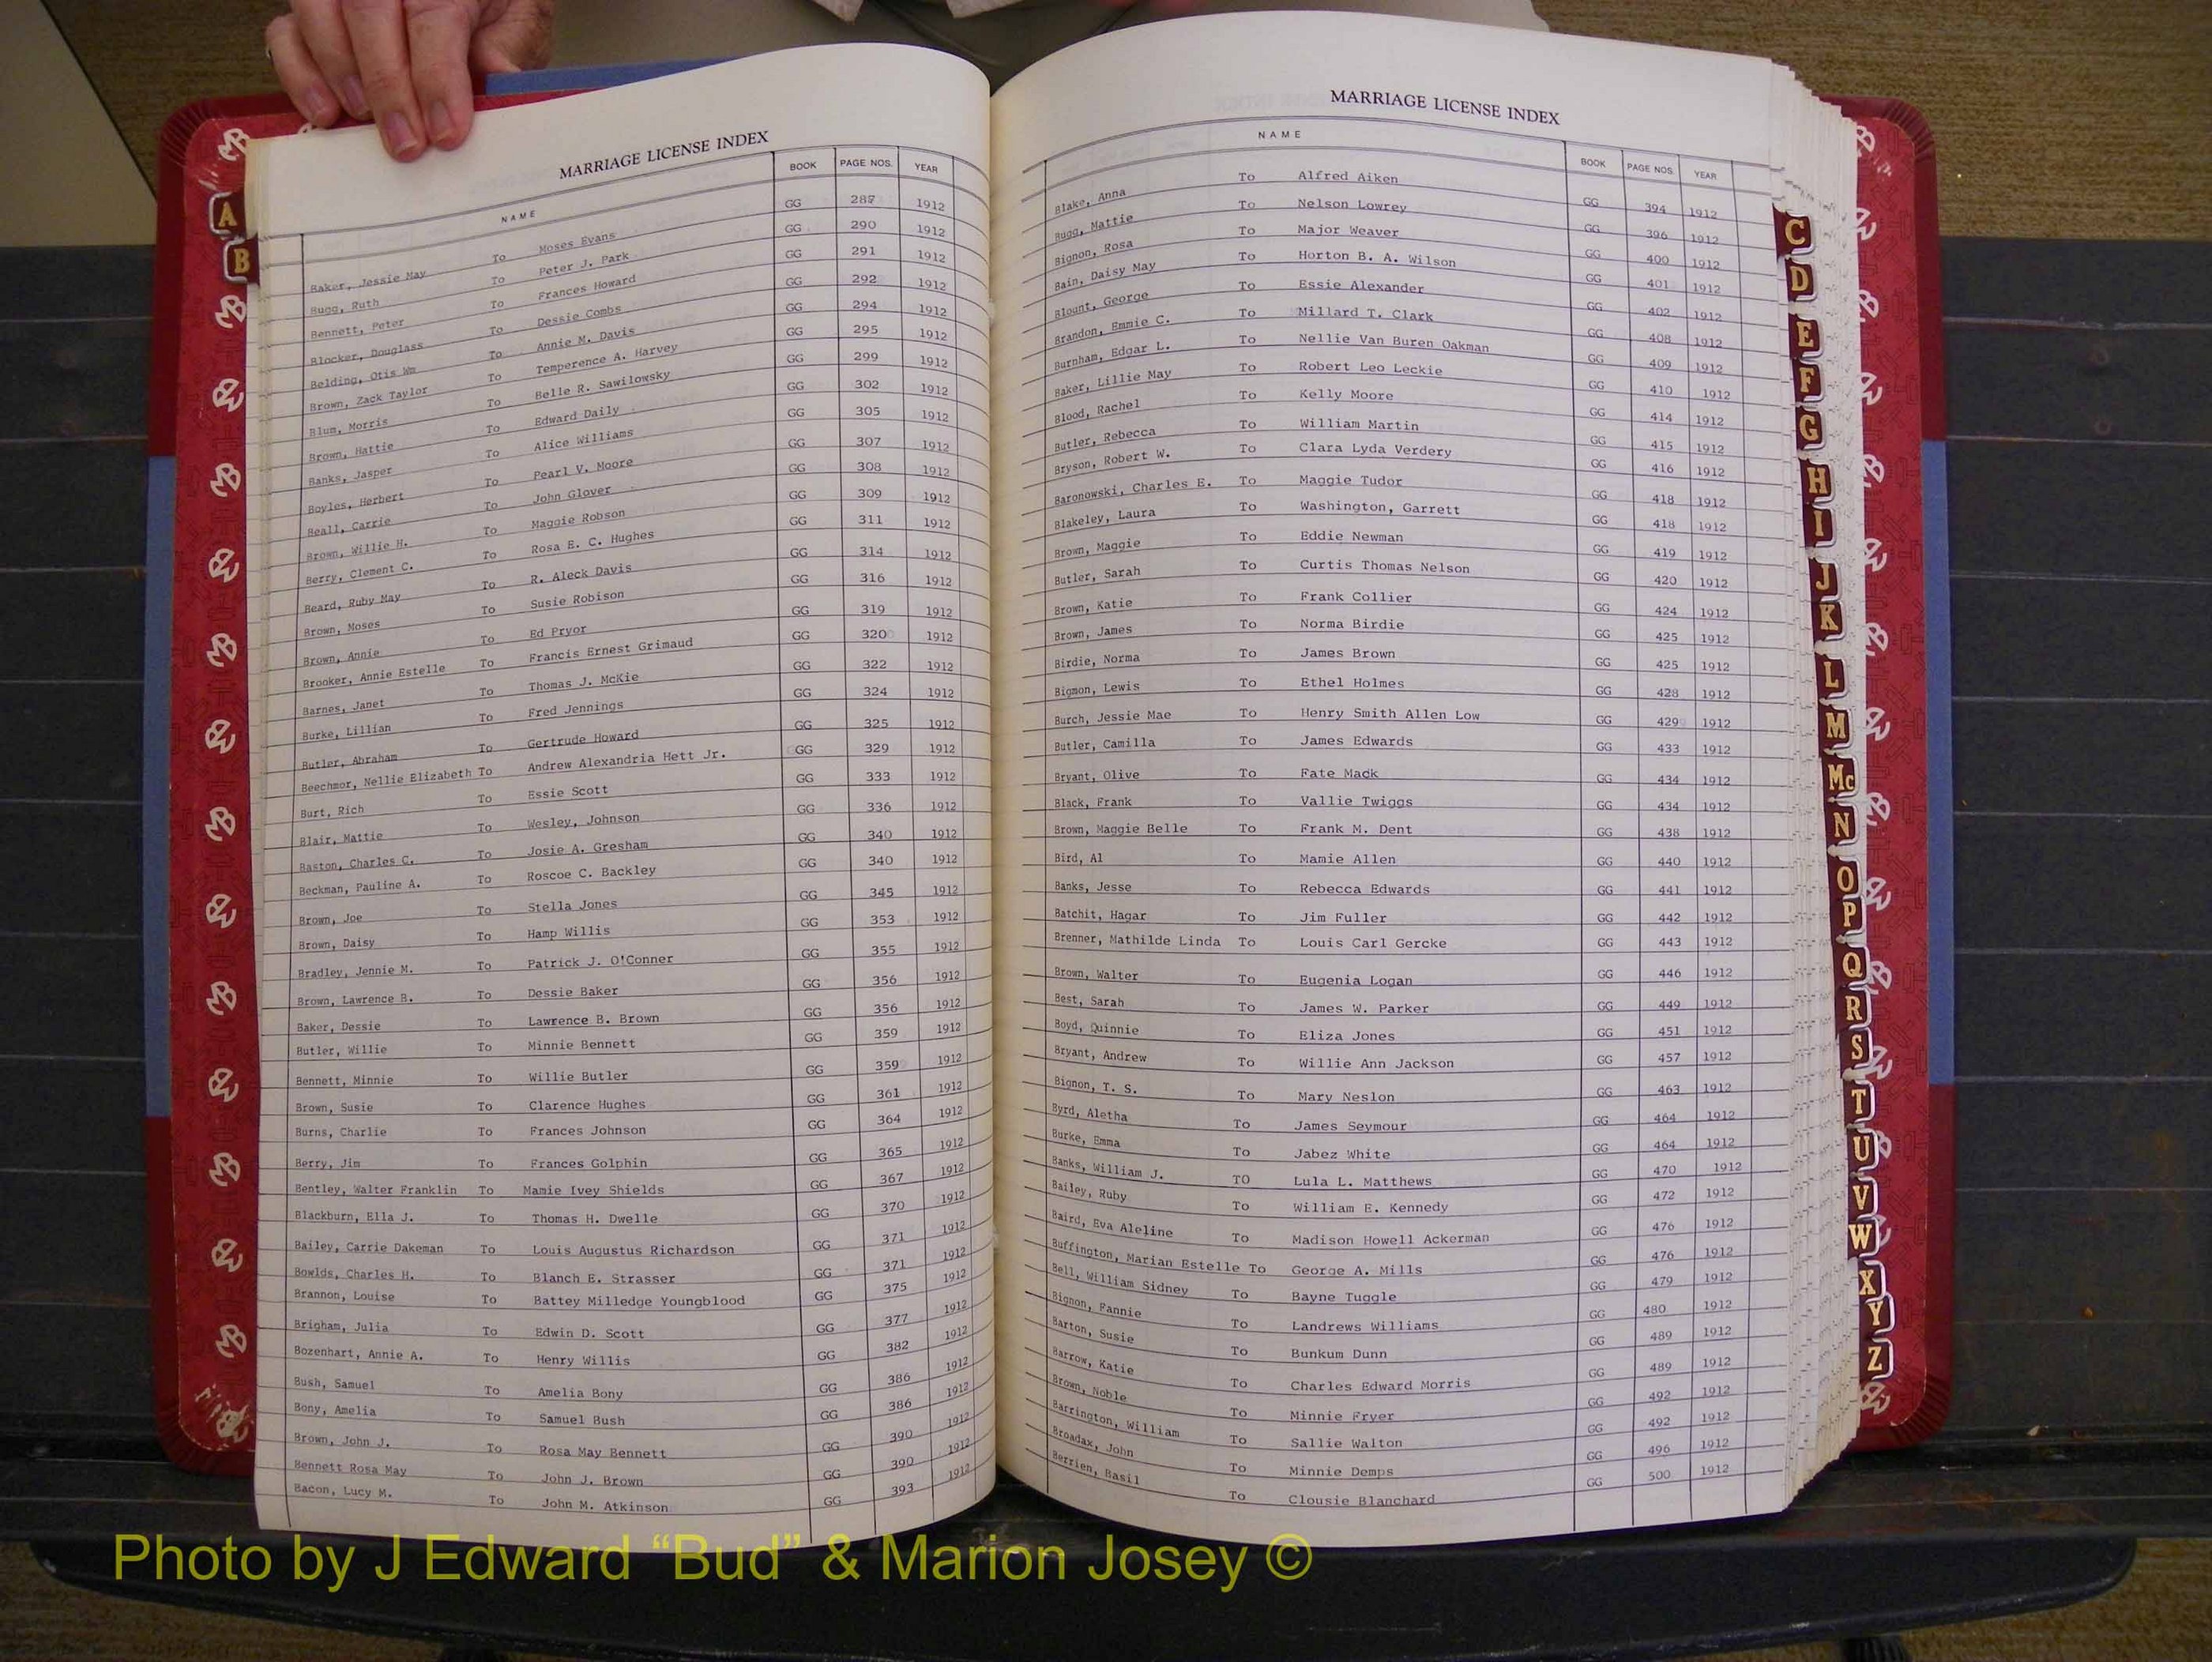 MARRIAGE LICENSE INDEX
NAME BOOK PAGE NOS. YEAR
Baker, Jessie May To Moses Evans GG 287 1912
Bugg, Ruth To Peter J. Park GG 290 1912
Bennett, Peter To Frances Howard GG 291 1912
Blocker, Douglass To Dessie Combs GG 292 1912
Belding, Otis Wm To Annie M. Davis GG 294 1912
Brown, Zack Taylor To Temperence A. Harvey GG 295 1912
Blum, Morris To Belle R. Sawilowsky GG 299 1912
Brown, Hattie To Edward Daily GG 302 1912
Banks, Jasper To Alice Williams GG 305 1912
Boyles, Herbert To Pearl V. Moore GG 307 1912
Beall, Carrie To John Glover GG 308 1912
Brown, Willie H. To Maggie Robson GG 309 1912
Berry, Clement C. To Rosa E. C. Hughes GG 311 1912
Beard, Ruby May To R. Aleck Davis GG 314 1912
Brown, Moses To Susie Robison GG 316 1912
Brown, Annie To Ed Pryor GG 319 1912
Brooker, Annie Estelle To Francis Ernest Grimaud GG 320 1912
Barnes, Janet To Thomas J. McKie GG 322 1912
Burke, Lillian To Fred Jennings GG 324 1912
Butler, Abraham To Gertrude Howard GG 325 1912
Beechmor, Nellie Elizabeth To Andrew Alexandria Hett Jr. GG 329 1912
Burt, Rich To Essie Scott GG 333 1912
Blair, Mattie To Wesley, Johnson GG 336 1912
Baston, Charles C. To Josie A. Gresham GG 340 1912
Beckman, Pauline A. To Roscoe C. Backley GG 340 1912
Brown, Joe To Stella Jones GG 345 1912
Brown, Daisy To Hamp Willis GG 353 1912
Bradley, Jennie M. To Patrick J. O'Conner GG 355 1912
Brown, Lawrence B. To Dessie Baker GG 356 1912
Baker, Dessie To Lawrence B. Brown GG 356 1912
Butler, Willie To Minnie Bennett GG 359 1912
Bennett, Minnie To Willie Butler GG 359 1912
Brown, Susie To Clarence Hughes GG 361 1912
Burns, Charlie To Frances Johnson GG 364 1912
Berry, Jim To Frances Golphin GG 365 1912
Bentley, Walter Franklin To Mamie Ivey Shields GG 367 1912
Blackburn, Ella J. To Thomas H. Dwelle GG 370 1912
Bailey, Carrie Dakeman To Louis Augustus Richardson GG 371 1912
Bowlds, Charles H. To Blanch E. Strasser GG 371 1912
Brannon, Louise To Battey Milledge Youngblood GG 375 1912
Brigham, Julia To Edwin D. Scott GG 377 1912
Bozenhart, Annie A. To Henry Willis GG 382 1912
Bush, Samuel To Amelia Bony GG 386 1912
Bony, Amelia To Samuel Bush GG 386 1912
Brown, John J. To Rosa May Bennett GG 390 1912
Bennett Rosa May To John J. Brown GG 390 1912
Bacon, Lucy M. To John M. Atkinson GG 393 1912
MARRIAGE LICENSE INDEX
NAME BOOK PAGE NOS. YEAR
Blake, Anna To Alfred Aiken GG 394 1912
Bugg, Mattie To Nelson Lowrey GG 396 1912
Bignon, Rosa To Major Weaver GG 400 1912
Bain, Daisy May To Horton B. A. Wilson GG 401 1912
Blount, George To Essie Alexander GG 402 1912
Brandon, Emmie C. To Millard T. Clark GG 408 1912
Burnham, Edgar L. To Nellie Van Buren Oakman GG 409 1912
Baker, Lillie May To Robert Leo Leckie GG 410 1912
Blood, Rachel To Kelly Moore GG 414 1912
Butler, Rebecca To William Martin GG 415 1912
Bryson, Robert W. To Clara Lyda Verdery GG 416 1912
Baronowski, Charles E. To Maggie Tudor GG 418 1912
Blakeley, Laura To Washington, Garrett GG 418 1912
Brown, Maggie To Eddie Newman GG 419 1912
Butler, Sarah To Curtis Thomas Nelson GG 420 1912
Brown, Katie To Frank Collier GG 424 1912
Brown, James To Norma Birdie GG 425 1912
Birdie, Norma To James Brown GG 425 1912
Bigmon, Lewis To Ethel Holmes GG 428 1912
Burch, Jessie Mae To Henry Smith Allen Low GG 429 1912
Butler, Camilla To James Edwards GG 433 1912
Bryant, Olive To Fate Mack GG 434 1912
Black, Frank To Vallie Twiggs GG 434 1912
Brown, Maggie Belle To Frank M. Dent GG 438 1912
Bird, Al To Mamie Allen GG 440 1912
Banks, Jesse To Rebecca Edwards GG 441 1912
Batchit, Hagar To Jim Fuller GG 442 1912
Brenner, Mathilde Linda To Louis Carl Gercke GG 443 1912
Brown, Walter To Eugenia Logan GG 446 1912
Best, Sarah To James W. Parker GG 449 1912
Boyd, Quinnie To Eliza Jones GG 451 1912
Bryant, Andrew To Willie Ann Jackson GG 457 1912
Bignon, T. S. To Mary Neslon GG 463 1912
Byrd, Aletha To James Seymour GG 464 1912
Burke, Emma To Jabez White GG 464 1912
Banks, William J. TO Lula L. Matthews GG 470 1912
Bailey, Ruby To William E. Kennedy GG 472 1912
Baird, Eva Aleline To Madison Howell Ackerman GG 476 1912
Buffington, Marian Estelle To George A. Mills GG 476 1912
Bell, William Sidney To Bayne Tuggle GG 479 1912
Bignon, Fannie To Landrews Williams GG 480 1912
Barton, Susie To Bunkum Dunn GG 489 1912
Barrow, Katie To Charles Edward Morris GG 489 1912
Brown, Noble To Minnie Fryer GG 492 1912
Barrington, William To Sallie Walton GG 492 1912
Broadax, John To Minnie Demps GG 496 1912
Berrien, Basil To Clousie Blanchard GG 500 1912
A
B
C
D
E
F
G
H
I
J
K
L
M
Mc
N
O
P
Q
R
S
T
U
V
W
X
Y
Z
Photo by J Edward “Bud” & Marion Josey ©